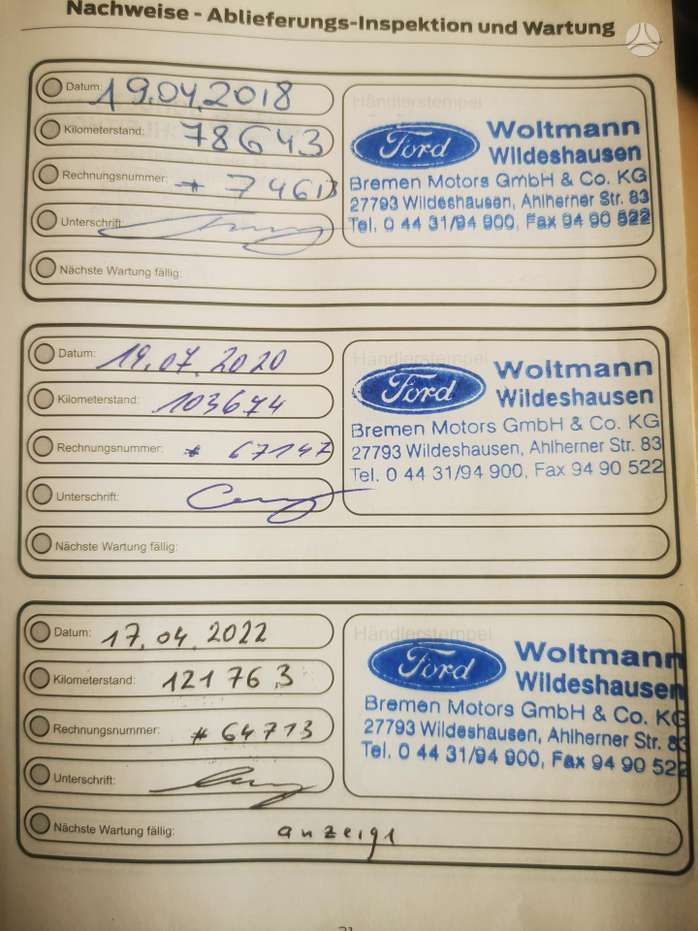 Nachweise - Ablieferungs-Inspektion und Wartung
Datum: 19.04.2018
Kilometerstand: 78643
Rechnungsnummer: # 74613
Unterschrift:
Nächste Wartung fällig:
Händlerstempel
Ford Woltmann
Wildeshausen
Bremen Motors GmbH & Co. KG
27793 Wildeshausen, Ahlherner Str. 83
Tel. 0 44 31/94 900, Fax 94 90 522
Datum: 19.07.2020
Kilometerstand: 103674
Rechnungsnummer: # 67147
Unterschrift:
Nächste Wartung fällig:
Händlerstempel
Ford Woltmann
Wildeshausen
Bremen Motors GmbH & Co. KG
27793 Wildeshausen, Ahlherner Str. 83
Tel. 0 44 31/94 900, Fax 94 90 522
Datum: 17.04.2022
Kilometerstand: 121763
Rechnungsnummer: # 64713
Unterschrift:
Nächste Wartung fällig: anzeige
Händlerstempel
Ford Woltmann
Wildeshausen
Bremen Motors GmbH & Co. KG
27793 Wildeshausen, Ahlherner Str. 83
Tel. 0 44 31/94 900, Fax 94 90 522